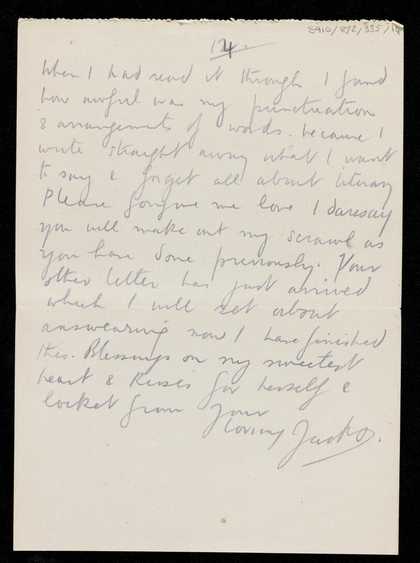 14.
When I had read it through I found
how awful was my punctuation
& arrangements of words. because I
write straight away what I want
to say & forget all about literary
Please forgive me love I daresay
you will make out my scrawl as
you have done previously. Your
other letter has just arrived
which I will set about
answearing now I have finished
this. Blessings on my sweetest
heart & kisses for herself &
locket from your
loving Jack